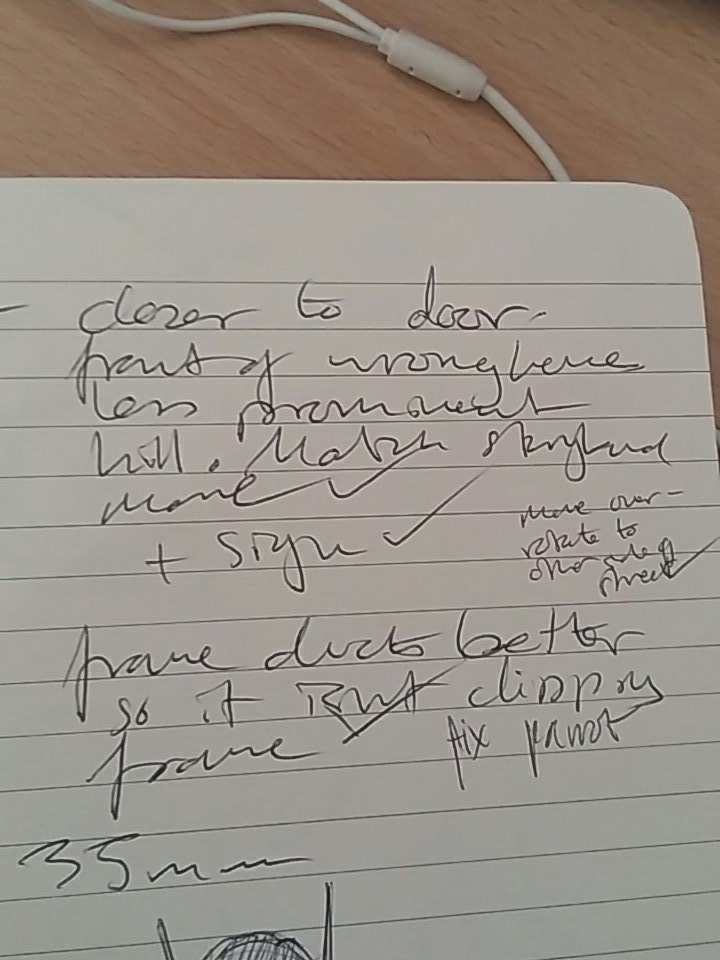 - closer to door.
front of wronghere
less prominent
hill. Match skyline
more ✓
+ sign ✓
move over -
rotate to
other side of
street ✓
frame ducts better
so it isn't clipping
frame ✓
fix pivot
35mm